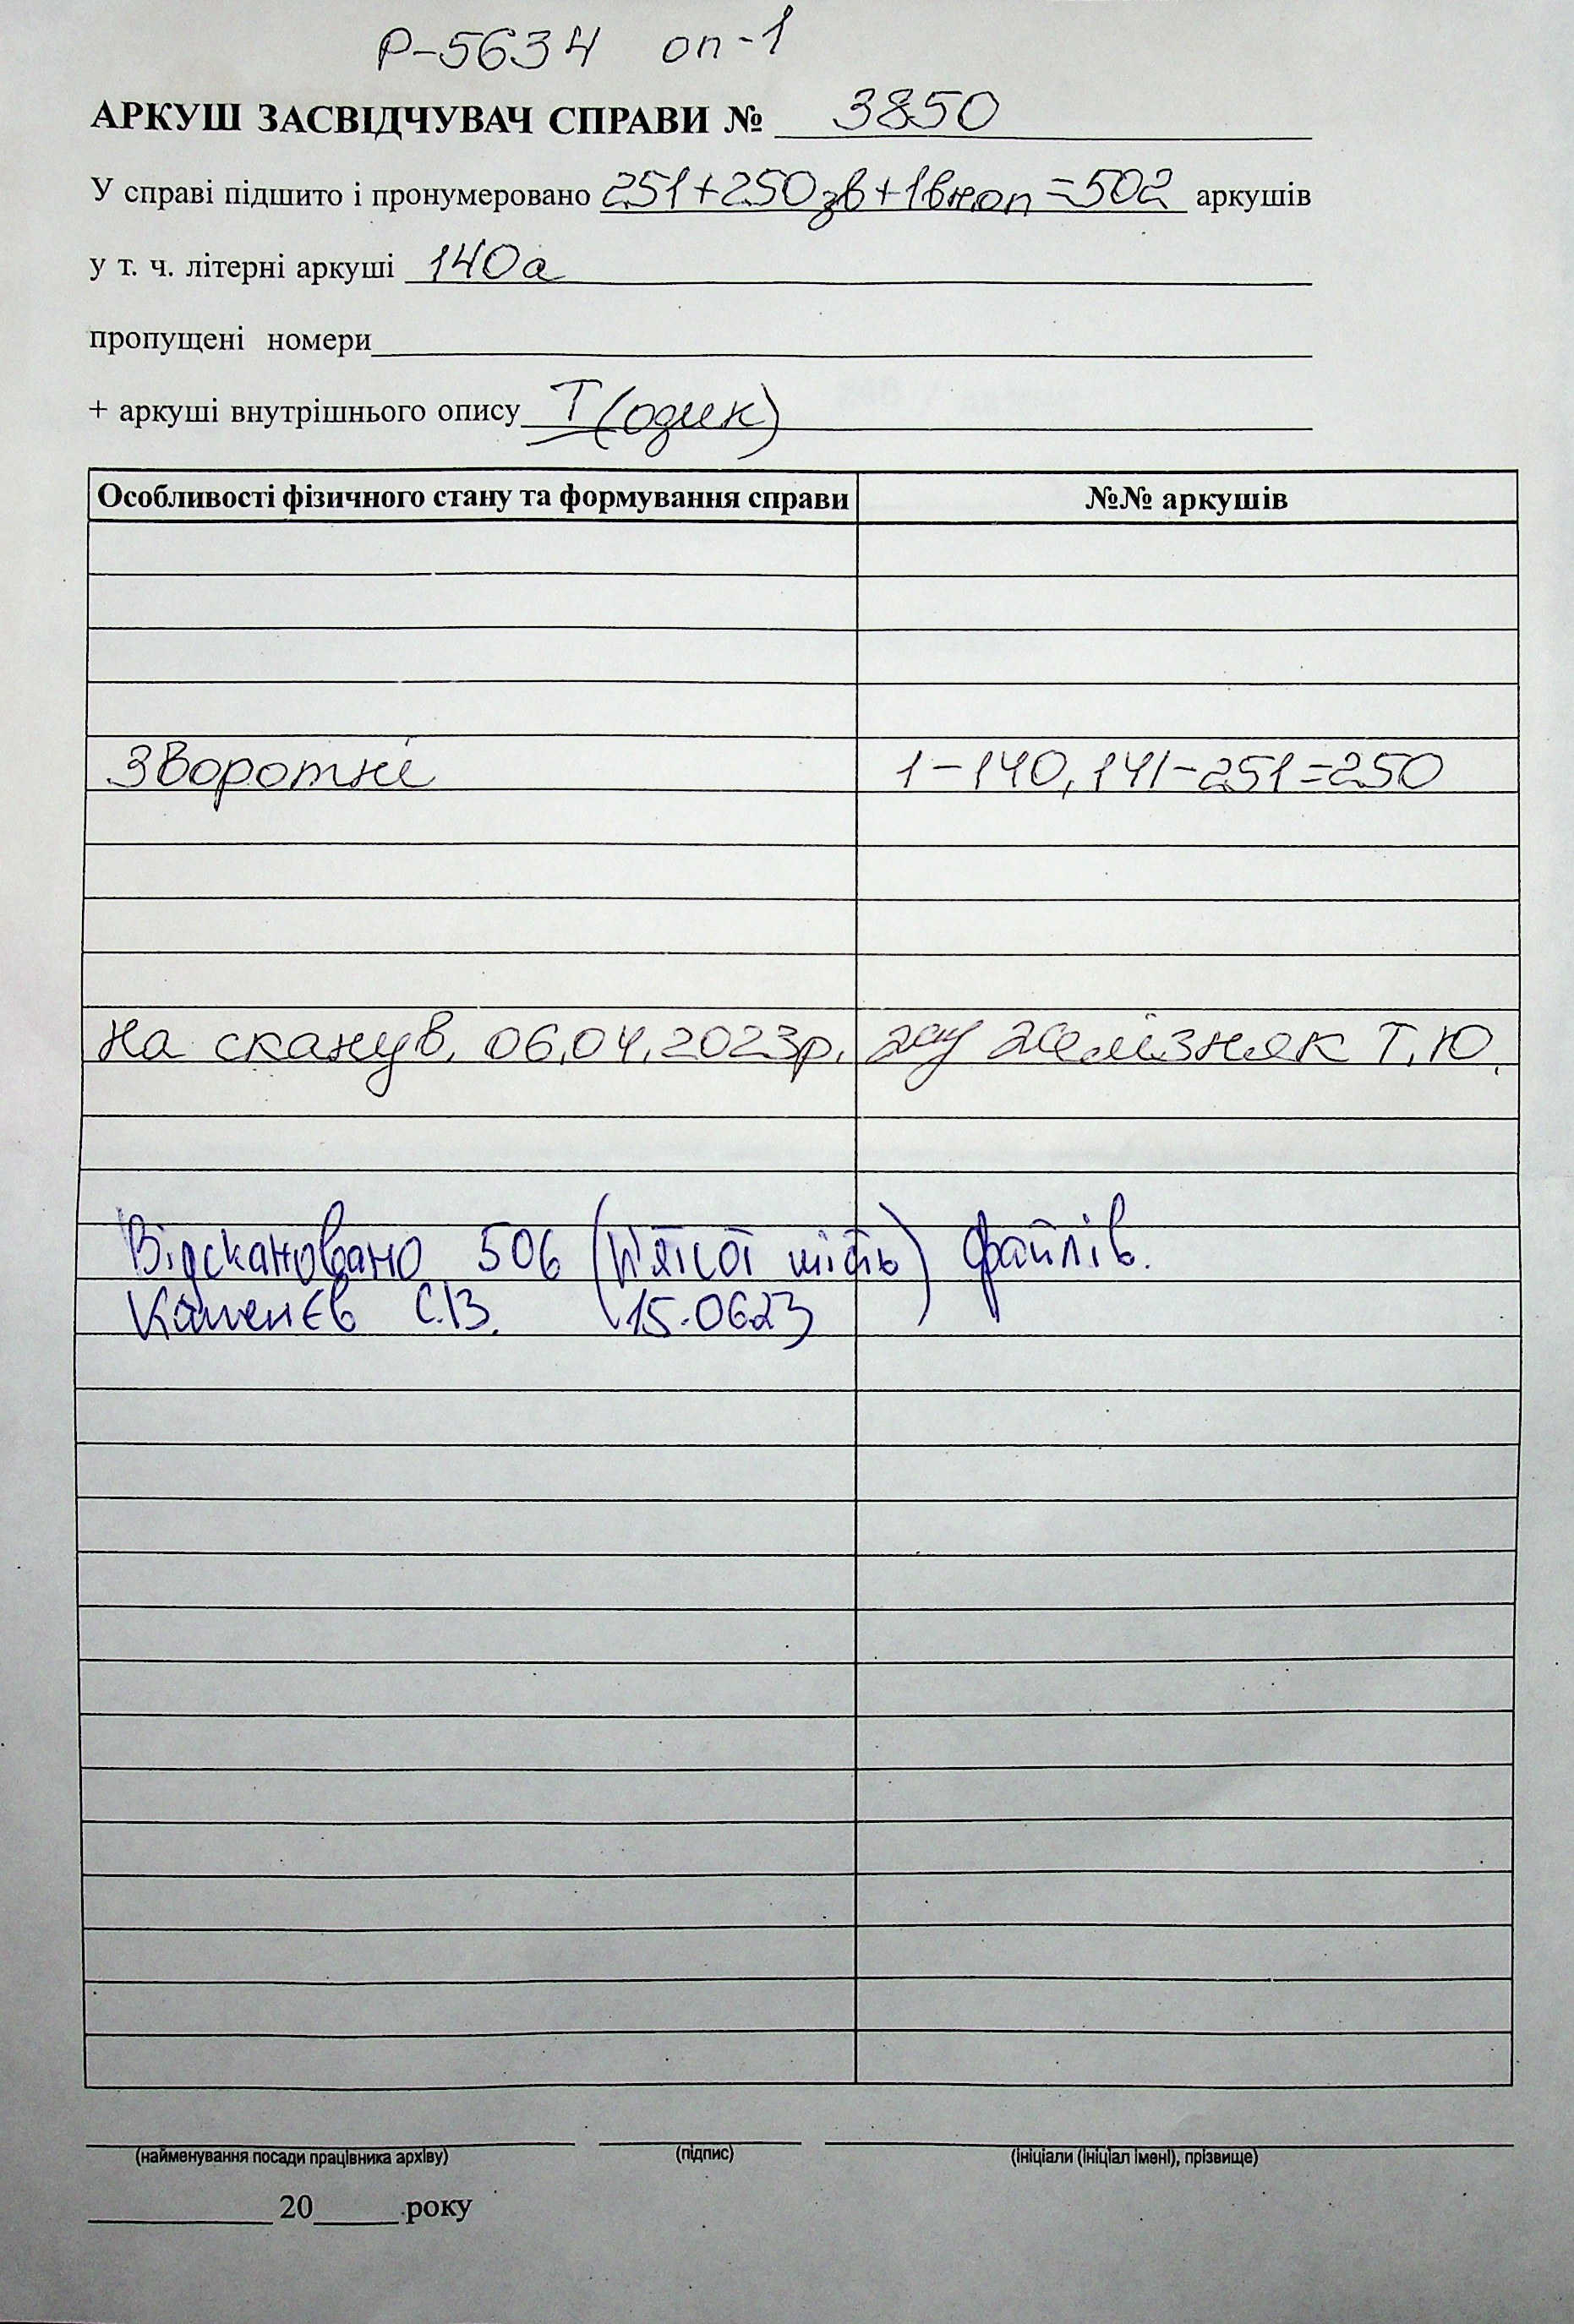 Р-5634 оп-1
АРКУШ ЗАСВІДЧУВАЧ СПРАВИ № 3850
У справі підшито і пронумеровано 251+250зв+1вн.оп=502 аркушів
у т. ч. літерні аркуші 140а
пропущені номери
+ аркуші внутрішнього опису 1 (один)
Особливості фізичного стану та формування справи №№ аркушів
Зворотні 1-140, 141-251=250
На сканув. 06.04.2023р. Желізняк Т.Ю.
Відскановано 506 (п'ятсот шість) файлів.
Каменєв С.В. 15.06.23
(найменування посади працівника архіву) (підпис) (ініціали (ініціал імені), прізвище)
20 року